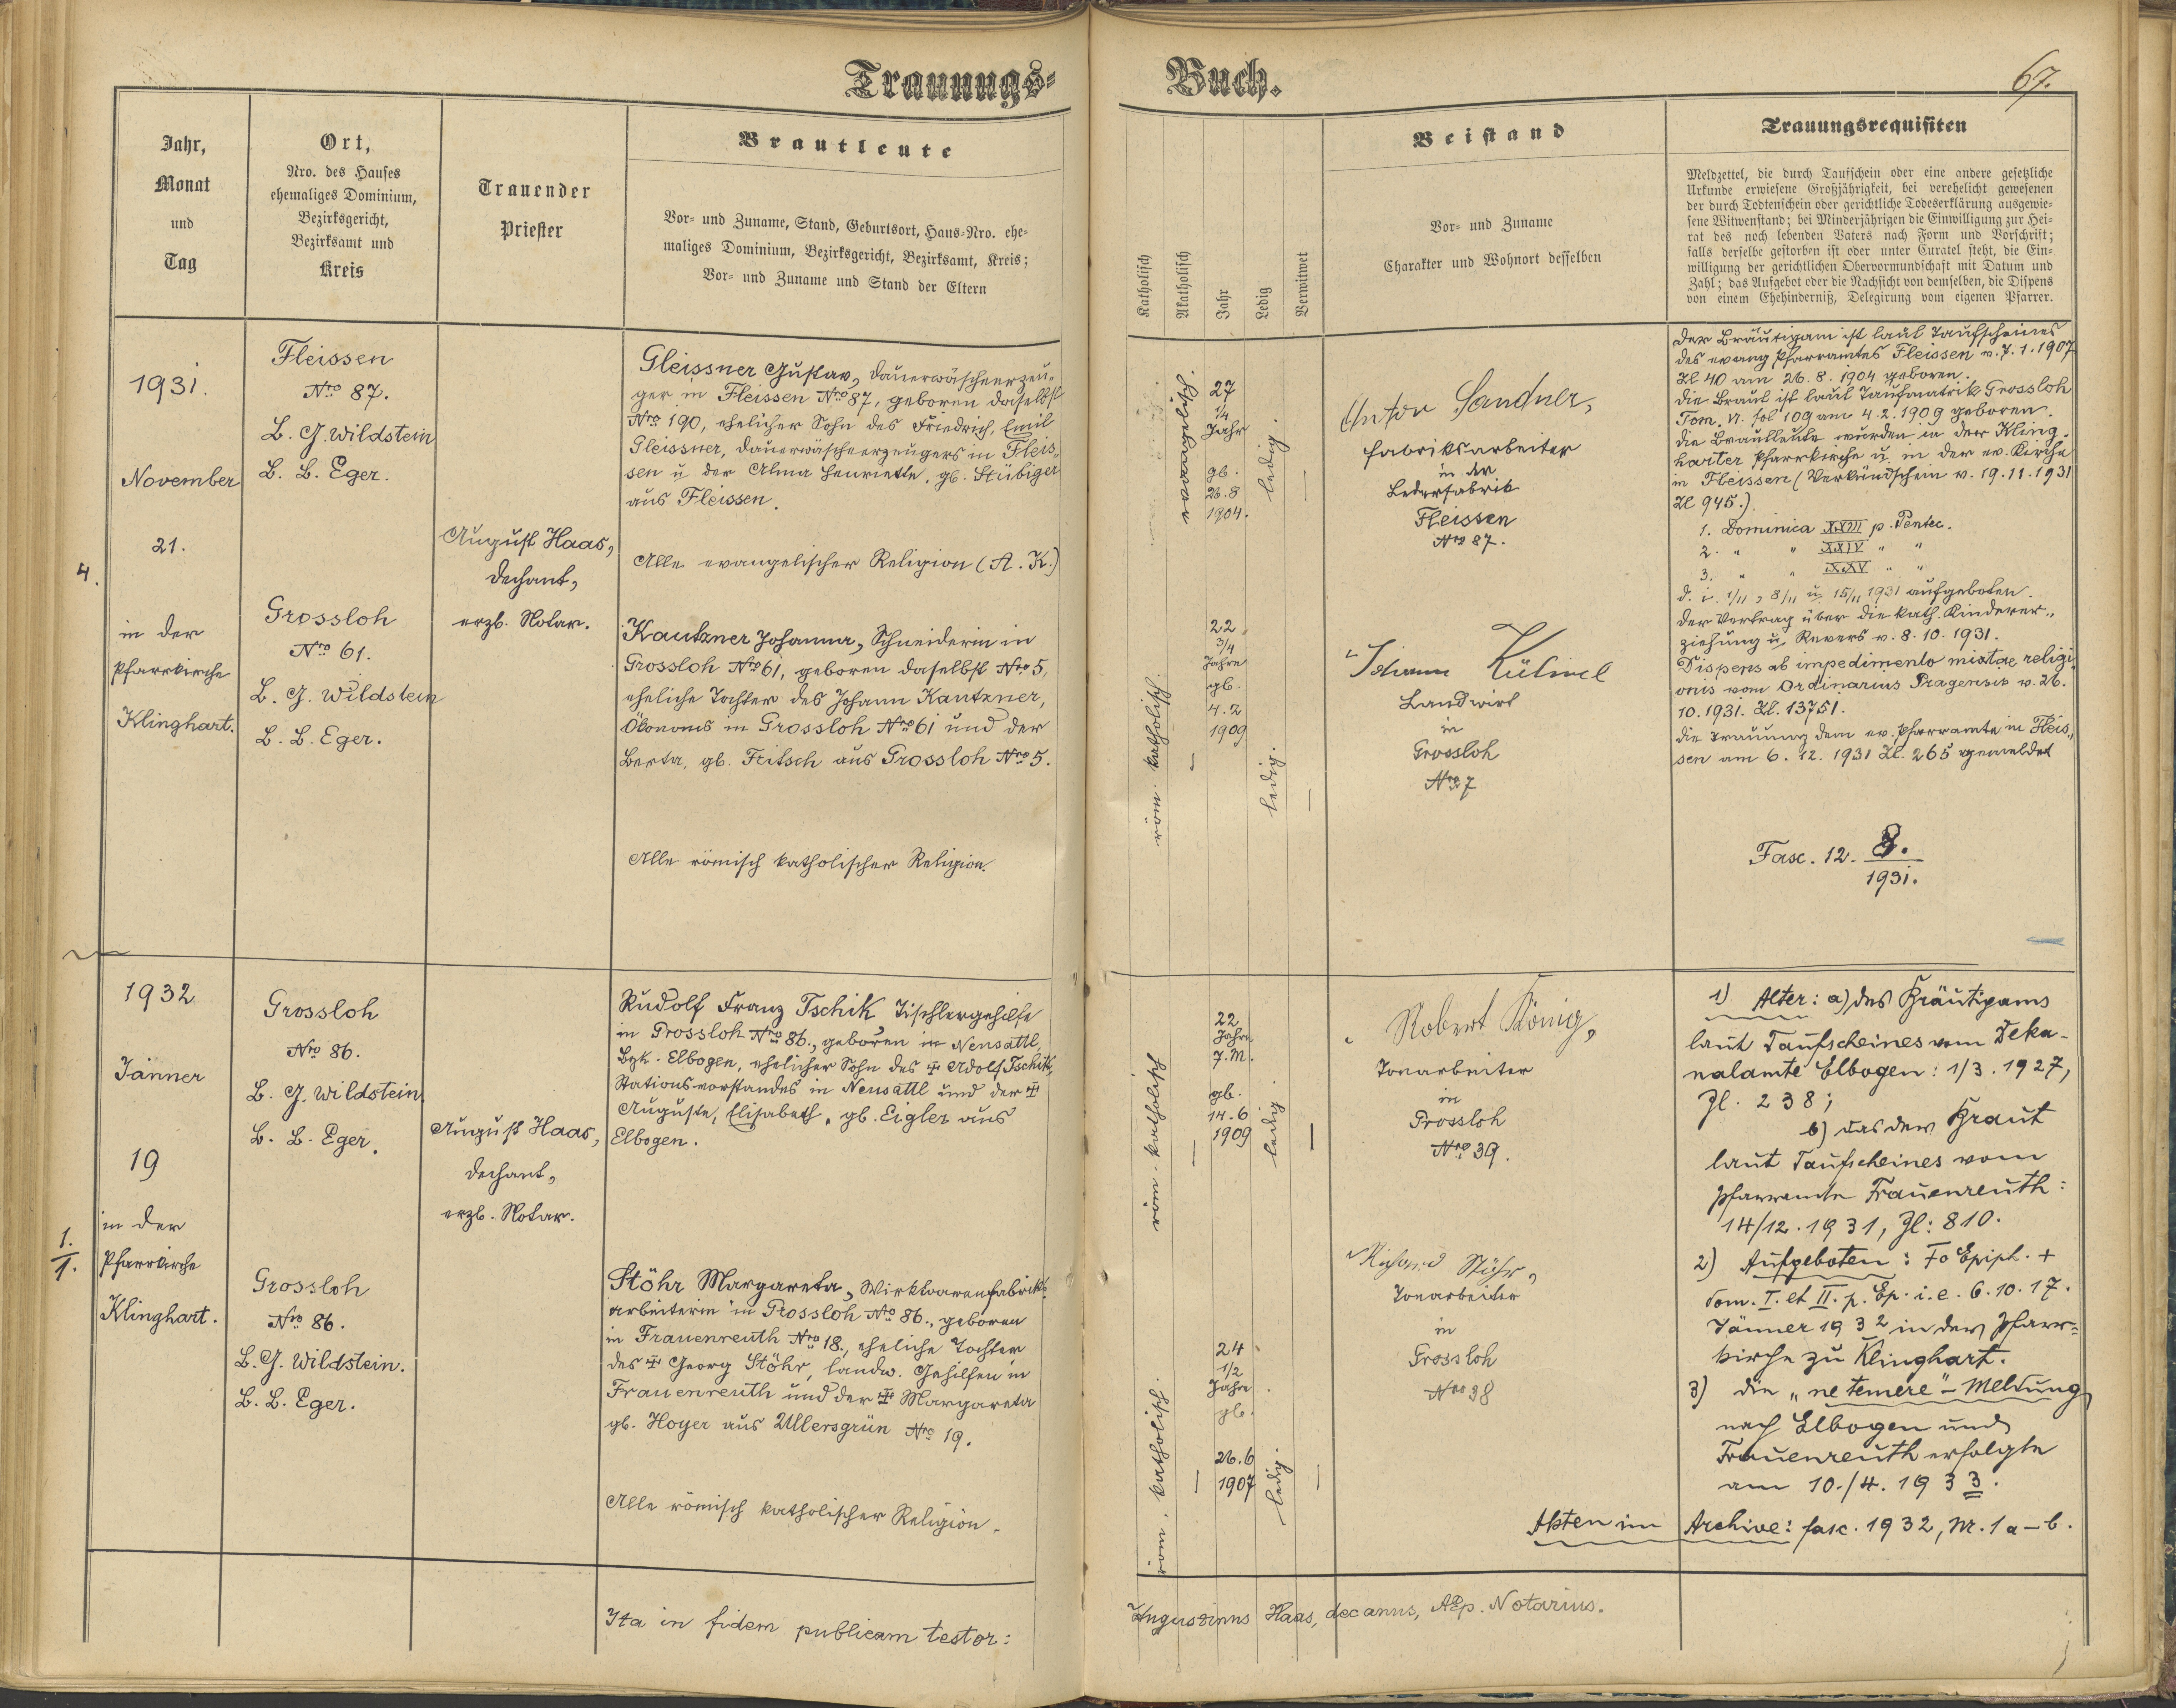 Trauungs-
Buch.
67.
Jahr,
Monat
und
Tag
Ort,
Nro. des Hauses
ehemaliges Dominium,
Bezirksgericht,
Bezirksamt und
Kreis
Trauender
Priester
Brautleute
Vor- und Zuname, Stand, Geburtsort, Haus-Nro. ehe-
maliges Dominium, Bezirksgericht, Bezirksamt, Kreis;
Vor- und Zuname und Stand der Eltern
Katholisch
Akatholisch
Jahr
Ledig
Verwitwet
Beistand
Vor- und Zuname
Charakter und Wohnort desselben
Trauungsrequisiten
Meldzettel, die durch Taufschein oder eine andere gesetzliche
Urkunde erwiesene Großjährigkeit, bei verehelicht gewesenen
der durch Todtenschein oder gerichtliche Todeserklärung ausgewie-
sene Witwenstand; bei Minderjährigen die Einwilligung zur Hei-
rat des noch lebenden Vaters nach Form und Vorschrift;
falls derselbe gestorben ist oder unter Curatel steht, die Ein-
willigung der gerichtlichen Obervormundschaft mit Datum und
Zahl; das Aufgebot oder die Nachsicht von demselben, die Dispens
von einem Ehehinderniß, Delegirung vom eigenen Pfarrer.
4.
1931.
November
21.
in der
Pfarrkirche
Klinghart.
Fleissen
Nro 87.
B. G. Wildstein
B. B. Eger.
Grossloh
Nro 61.
B. G. Wildstein
B. B. Eger.
August Haas,
Dechant,
erzb. Notar.
Gleissner Gustav, Dauerwäscheerzeu-
ger in Fleissen Nro 87, geboren daselbst
Nro 190, ehelicher Sohn des Friedrich, Emil
Gleissner, Dauerwäscheerzeugers in Fleis-
sen u. der Alma Henriette, gb. Stübiger
aus Fleissen.
Alle evangelischer Religion (A. K.)
Kautzner Johanna, Schneiderin in
Grossloh Nro 61, geboren daselbst Nro 5,
eheliche Tochter des Johann Kautzner,
Ökonoms in Grossloh Nro 61 und der
Berta, gb. Fritsch aus Grossloh Nro 5.
Alle römisch katholischer Religion.
evangelisch.
27
1/4
Jahr
gb.
26.8
1904.
ledig.
röm. katholisch.
22
3/4
Jahre
gb.
4.2
1909
ledig.
Anton Sandner,
Fabriksarbeiter
in der
Lederfabrik
Fleissen
Nro 87.
Johann Kühnel
Landwirt
in
Grossloh
Nro 7
Der Bräutigam ist laut Taufscheines
des evang Pfarramtes Fleissen v. 7.1.1907
Zl 40 am 26.8.1904 geboren.
Die Braut ist laut Taufmatrik Grossloh
Tom. VI. fol 109 am 4.2.1909 geboren.
Die Brautleute wurden in der Kling-
harter Pfarrkirche u. in der ev. Kirche
in Fleissen (Verkündschein v. 19.11.1931
Zl 945.)
1. Dominica XXIII p. Pentec.
2. " " XXIV " "
3. " " XXV " "
d. i. 1/11, 8/11 u. 15/11 1931 aufgeboten.
Der Vertrag über die kath. Kinderer-
ziehung u. Revers v. 8.10.1931.
Dispens ab impedimento mixtae religi-
onis vom Ordinarius Pragensis v. 26.
10.1931. Zl. 13751.
Die Trauung dem ev. Pfarramte in Fleis-
sen am 6.12.1931 Zl. 265 gemeldet
Fasc. 12. 8.
1931.
1.
1.
1932
Jänner
19
in der
Pfarrkirche
Klinghart.
Grossloh
Nro 86.
B. G. Wildstein.
B. B. Eger.
Grossloh
Nro 86.
B. G. Wildstein.
B. B. Eger.
August Haas,
Dechant,
erzb. Notar.
Rudolf Franz Tschik Tischlergehilfe
in Grossloh Nro 86., geboren in Neusattl,
Bzk. Elbogen, ehelicher Sohn des ‡ Adolf Tschik,
Stationsvorstandes in Neusattl und der ‡
Auguste, Elisabeth, gb. Eigler aus
Elbogen.
Stöhr Margareta, Wirkwarenfabriks-
arbeiterin in Grossloh Nro 86., geboren
in Frauenreuth Nro 18., eheliche Tochter
des ‡ Georg Stöhr, landw. Gehilfen in
Frauenreuth und der ‡ Margareta
gb. Hoyer aus Ullersgrün Nro 19.
Alle römisch katholischer Religion.
röm. katholisch
22
Jahre
7. M.
gb.
14.6
1909
ledig.
röm. katholisch.
24
1/2
Jahre
gb.
26.6
1907
ledig.
Robert König,
Tonarbeiter
in
Grossloh
Nro 39.
Richard Stöhr,
Tonarbeiter
in
Grossloh
Nro 38
1) Alter: a) des Bräutigams
laut Taufscheines vom Deka-
nalamte Elbogen: 1/3. 1927,
Zl. 238;
b) das der Braut
laut Taufscheines vom
Pfarramte Frauenreuth:
14/12. 1931, Zl: 810.
2) Aufgeboten: Fo Epiph. +
Dom. I. et II. p. Ep. i. e. 6. 10. 17.
Jänner 1932 in der Pfarr-
kirche zu Klinghart.
3) Die "ne temere" - Meldung
nach Elbogen und
Frauenreuth erfolgte
am 10./4. 1933.
Akten im Archive: fasc. 1932, Nr. 1 a-b.
Ita in fidem publicam testor:
Augustinus Haas, decanus, AEp. Notarius.